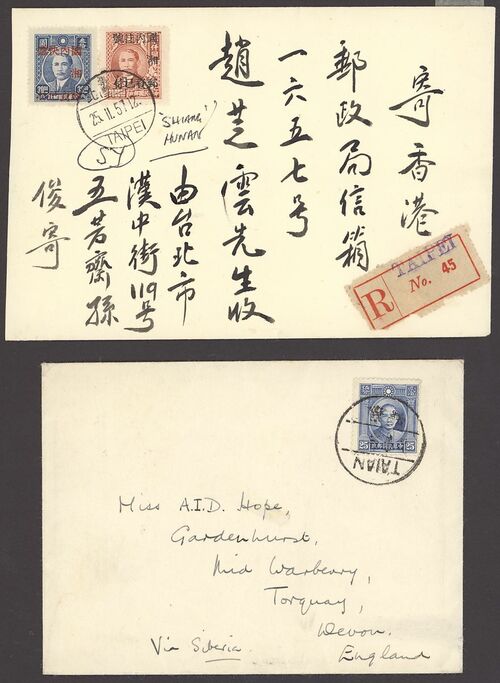 寄香港
郵政局信箱
一六五七號
趙芝雲先生收
由台北市
漢中街119号
五芳齋孫
俊寄
國內平信
湘
TAIPEI
SY
"SHIANG"
HUNAN
TAIPEI
R
No. 45
25
25
TAIAN
Miss A.I.D. Hope,
Gardenhurst,
Mid Warberry,
Torquay,
Devon.
England
Via Siberia.